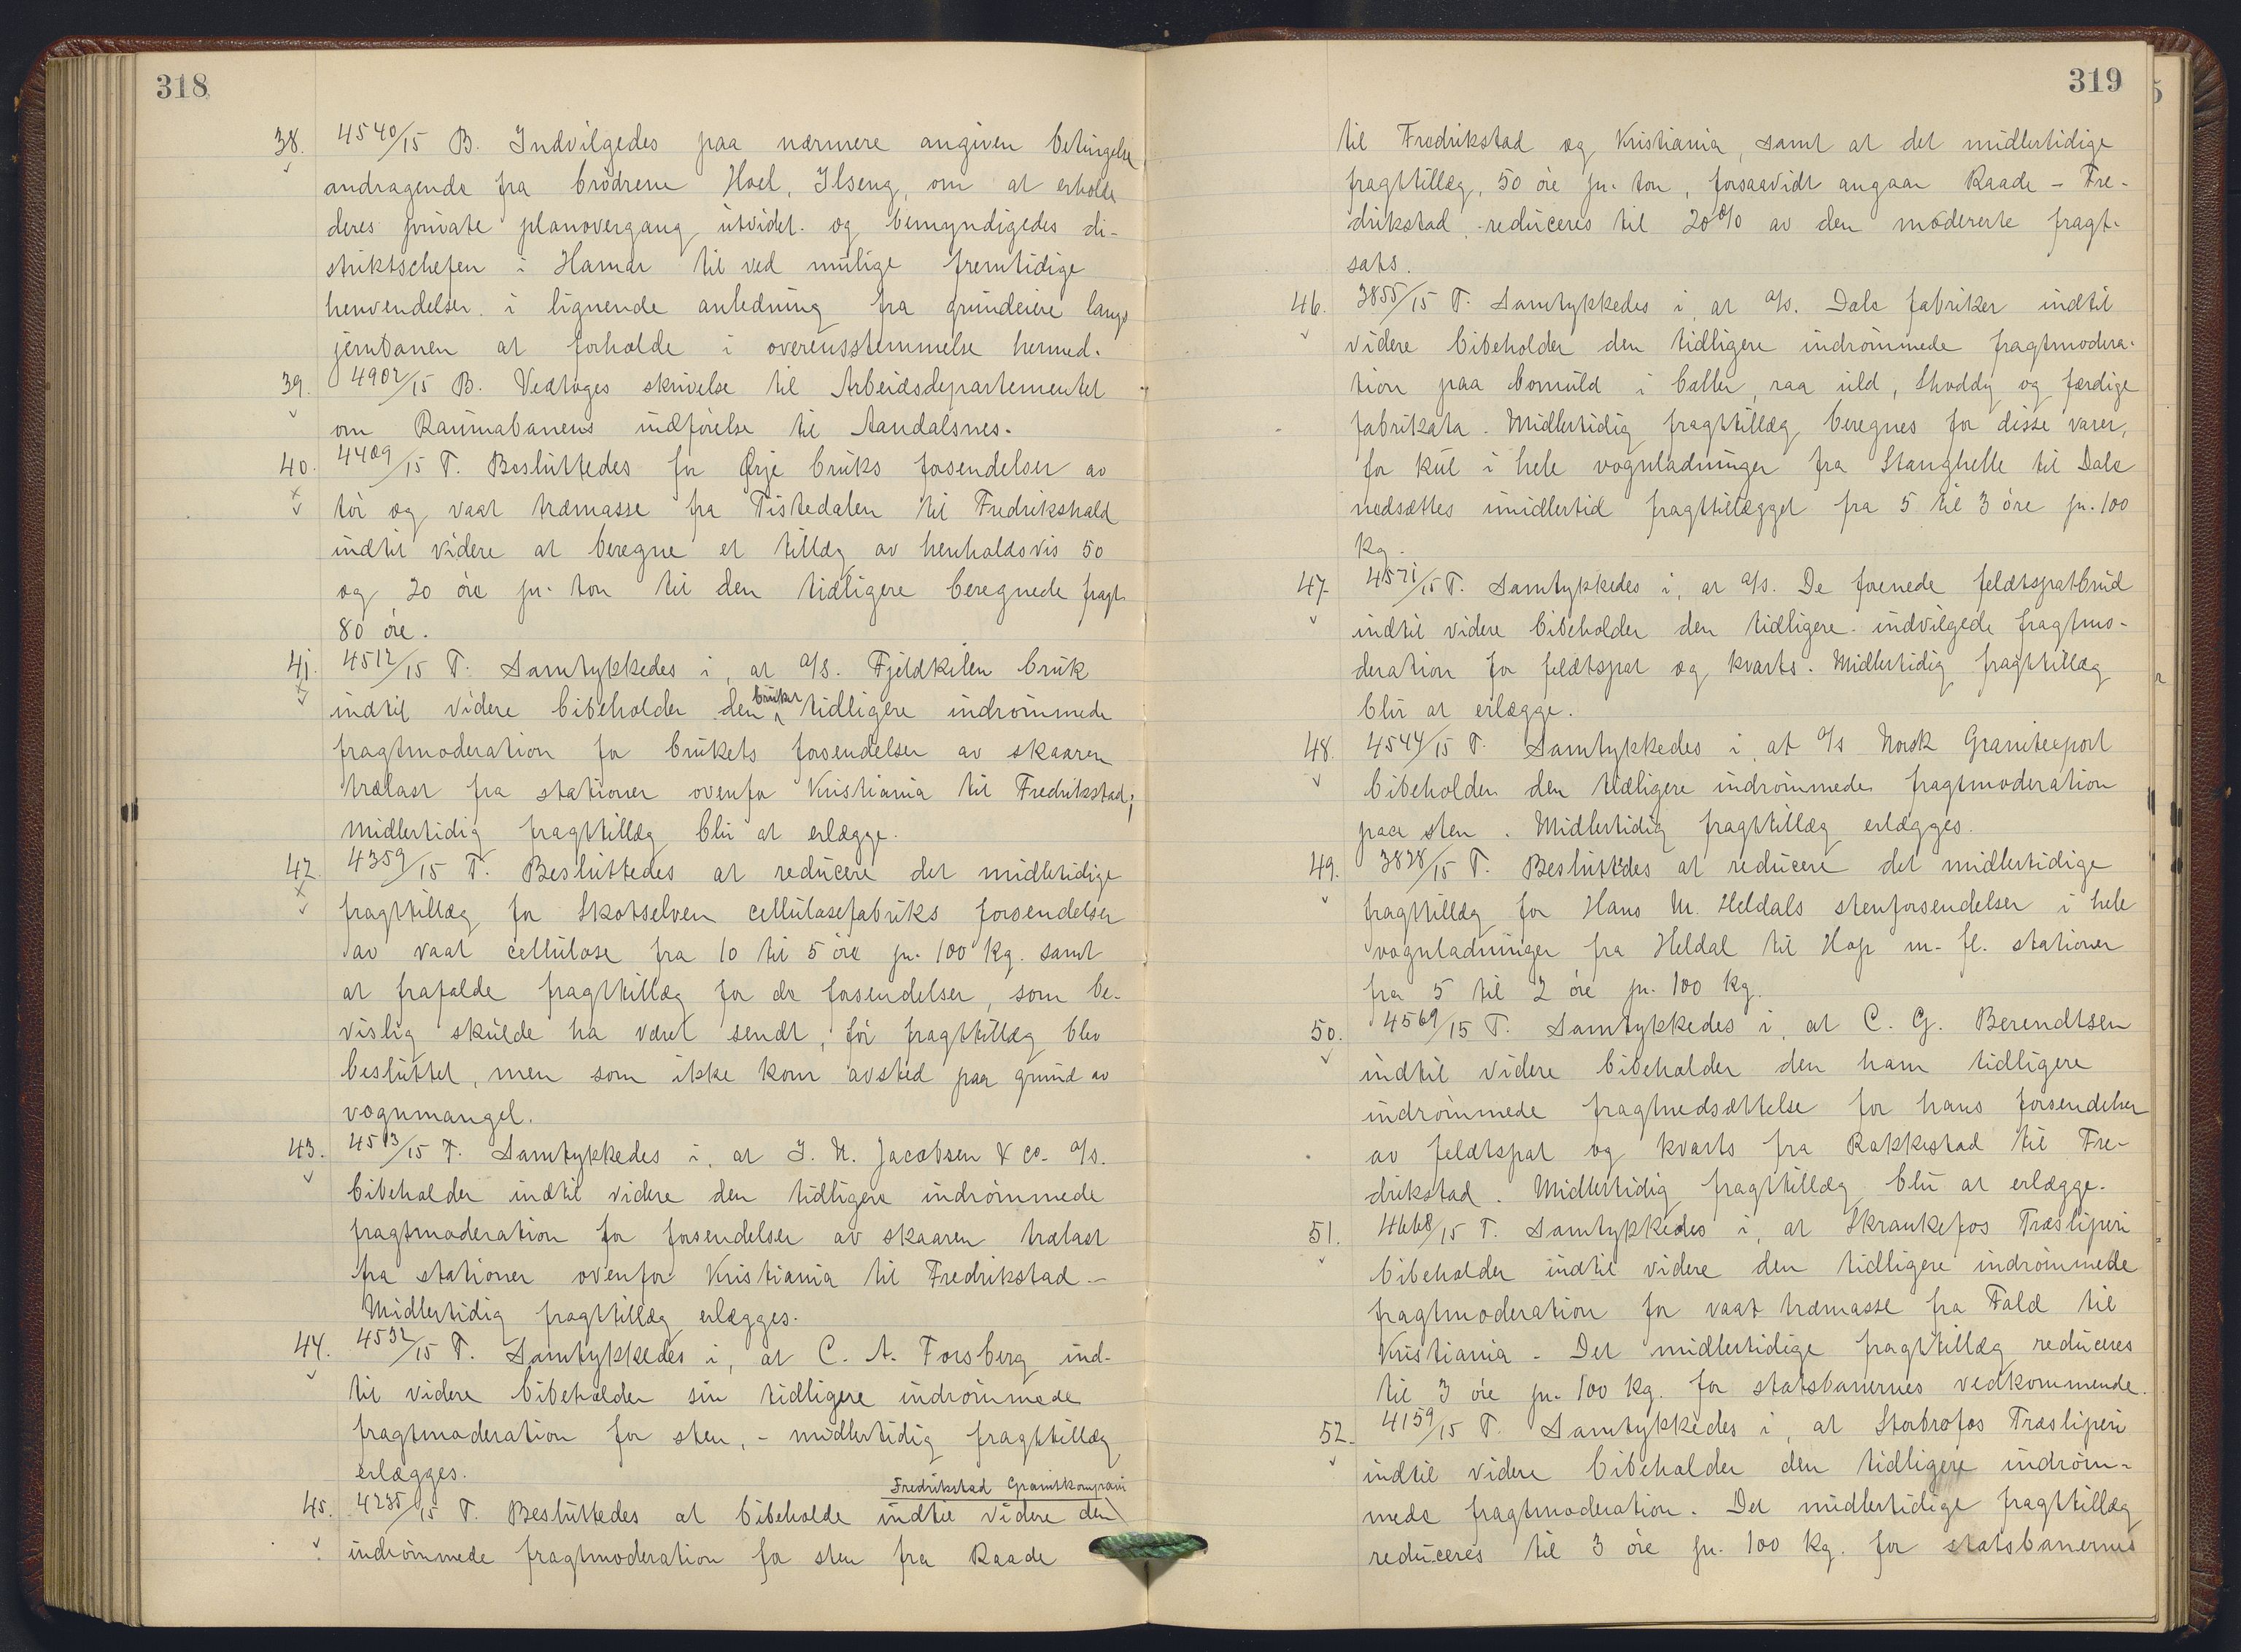 318
38. 4540/15 B. Indvilgedes paa nærmere angiven betingelse
andragende fra brödrene Hoel, Ilseng, om at erholde
deres private planovergang utvidet og bemyndigedes di-
striktschefen i Hamar til ved mulige fremtidige
henvendelser i lignende anledning fra grundeiere langs
jernbanen at forholde i overensstemmelse hermed.
39. 4902/15 B. Vedtoges skrivelse til Arbeidsdepartementet
om Raumabanens indförelse til Aandalsnes.
40. 4409/15 T. Besluttedes for Ørje bruks forsendelser av
tör og vaat træmasse fra Tistedalen til Fredrikshald
indtil videre at beregne et tillæg av henholdsvis 50
og 20 öre pr. ton til den tidligere beregnede fragt
80 öre.
41. 4512/15 T. Samtykkedes i, at A/S. Fjeldkilen bruk
indtil videre bibeholder den bruket tidligere indrömmede
fragtmoderation for brukets forsendelser av skaaren
trælast fra stationer ovenfor Kristiania til Fredrikstad;
midlertidig fragttillæg blir at erlægge.
42. 4359/15 T. Besluttedes at reducere det midlertidige
fragttillæg for Skotselven cellulosefabriks forsendelser
av vaat cellulose fra 10 til 5 öre pr. 100 kg. samt
at frafalde fragttillæg for de forsendelser, som be-
vislig skulde ha været sendt, för fragttillæg blev
besluttet, men som ikke kom avsted paa grund av
vognmangel.
43. 4513/15 T. Samtykkedes i, at J. N. Jacobsen & Co. A/S.
bibeholder indtil videre den tidligere indrömmede
fragtmoderation for forsendelser av skaaren trælast
fra stationer ovenfor Kristiania til Fredrikstad.-
Midlertidig fragttillæg erlægges.
44. 4532/15 T. Samtykkedes i, at C. A. Forsberg ind-
til videre bibeholder sin tidligere indrömmede
fragtmoderation for sten, - midlertidig fragttillæg
erlægges.
Fredrikstad Granitkompani
45. 4235/15 T. Besluttedes at bibeholde indtil videre den
indrömmede fragtmoderation for sten fra Raade
319
til Fredrikstad og Kristiania, samt at det midlertidige
fragttillæg, 50 öre pr. ton, forsaavidt angaar Raade - Fre-
drikstad, reduceres til 20% av den modererte fragt-
sats.
46. 3855/15 T. Samtykkedes i, at A/S. Dale fabriker indtil
videre bibeholder den tidligere indrömmede fragtmodera-
tion paa bomuld i baller, raa uld, Shoddy og færdige
fabrikata. Midlertidig fragttillæg beregnes for disse varer,
for kul i hele vognladninger fra Stanghelle til Dale
nedsættes imidlertid fragttillægget fra 5 til 3 öre pr. 100
kg.
47. 4571/15 T. Samtykkedes i, at A/S. De forenede feldtspatbrud
indtil videre bibeholder den tidligere indvilgede fragtmo-
deration for feldtspat og kvarts. Midlertidig fragttillæg
blir at erlægge.
48. 4544/15 T. Samtykkedes i, at A/S Norsk Granitexport
bibeholder den tidligere indrömmede fragtmoderation
paa sten. Midlertidig fragttillæg erlægges.
49. 3828/15 T. Besluttedes at reducere det midlertidige
fragttillæg for Hans M. Heldals stenforsendelser i hele
vognladninger fra Heldal til Hop m. fl. stationer
fra 5 til 2 öre pr. 100 kg.
50. 4569/15 T. Samtykkedes i, at C. G. Berendtsen
indtil videre bibeholder den ham tidligere
indrömmede fragtnedsættelse for hans forsendelser
av feldtspat og kvarts fra Rakkestad til Fre-
drikstad. Midlertidig fragttillæg blir at erlægge.
51. 4668/15 T. Samtykkedes i, at Skrankefos Træsliperi
bibeholder indtil videre den tidligere indrömmede
fragtmoderation for vaat træmasse fra Fald til
Kristiania. Det midlertidige fragttillæg reduceres
til 3 öre pr. 100 kg. for statsbanernes vedkommende.
52. 4159/15 T. Samtykkedes i, at Storbrofos Træsliperi
indtil videre bibeholder den tidligere indröm-
mede fragtmoderation. Det midlertidige fragttillæg
reduceres til 3 öre pr. 100 kg. for statsbanernes